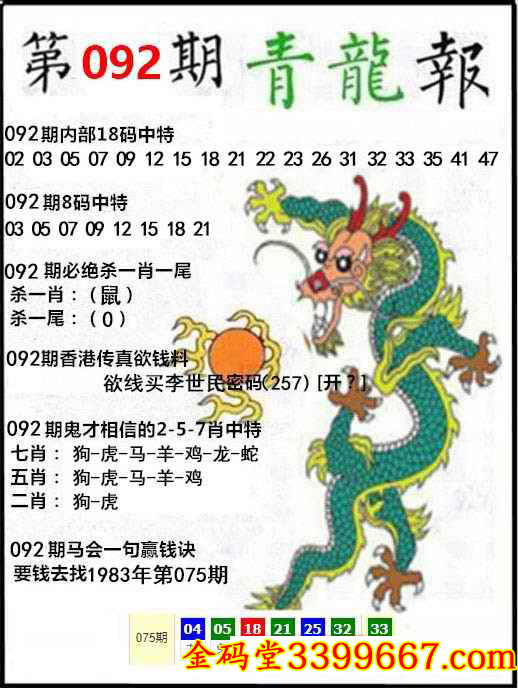 第092期青龍報
092期内部18码中特
02 03 05 07 09 12 15 18 21 22 23 26 31 32 33 35 41 47
092期8码中特
03 05 07 09 12 15 18 21
092期必绝杀一肖一尾
杀一肖：（鼠）
杀一尾：（0）
092期香港传真欲钱料
欲线买李世民密码(257) [开？]
092期鬼才相信的2-5-7肖中特
七肖：狗-虎-马-羊-鸡-龙-蛇
五肖：狗-虎-马-羊-鸡
二肖：狗-虎
092期马会一句赢钱诀
要钱去找1983年第075期
075期 04 05 18 21 25 32 33
金码堂3399667.com